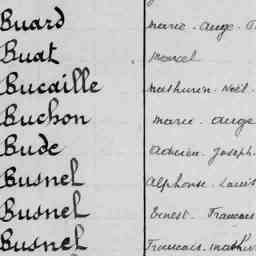 Buard Marie-Ange
Buat Marcel
Bucaille Mathurin-Noël-
Buchon Marie-Ange
Bude Adrien-Joseph
Busnel Alphonse-Louis
Busnel Ernest-François
Busnel François-Mathurin